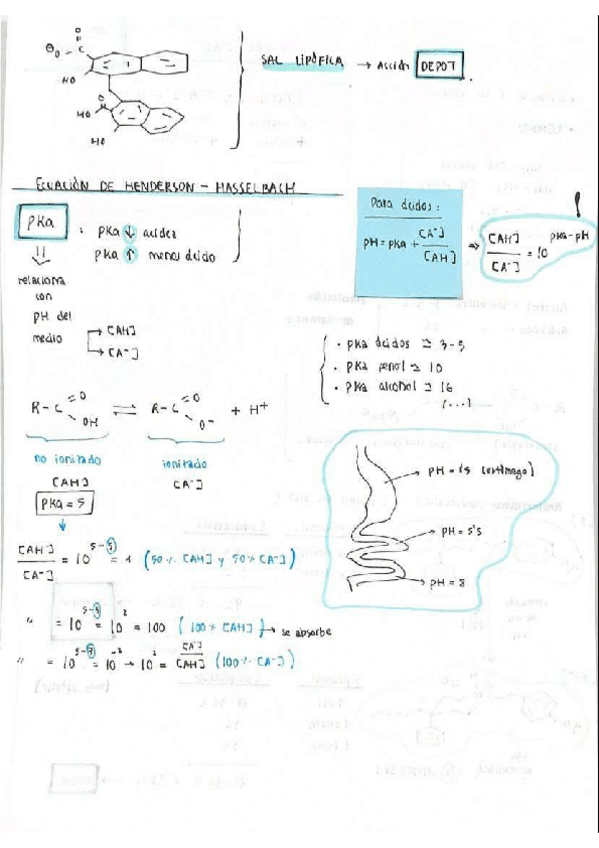 O
⊖O
C
HO
HO
O
HO
SAL LIPÓFILA → ACCIÓN DEPOT.
ECUACIÓN DE HENDERSON - HASSELBACH
pKa : pKa ↓ acidez
pKa ↑ menos ácido
relaciona
con
pH del
medio
→ [AH]
→ [A-]
Para ácidos:
pH = pKa + [A-] / [AH]
⇒ [AH] / [A-] = 10 pKa-pH !
· pKa ácidos ≃ 3-5
· pKa fenol ≃ 10
· pKa alcohol ≃ 16
(...)
R-C O OH ⇌ R-C O O- + H+
no ionizado ionizado
[AH] [A-]
pKa = 5
[AH] / [A-] = 10 5-5 = 1 (50% [AH] y 50% [A-])
" = 10 5-3 = 10 2 = 100 (100% [AH]) → se absorbe
" = 10 = 10 -2 → 10 2 = [A-] / [AH] (100% [A-])
(estómago)
pH = 5'5
pH = 8